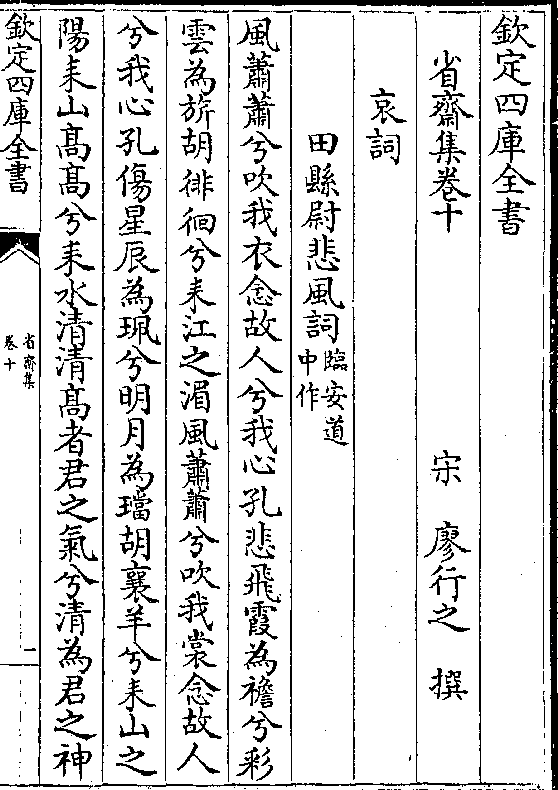 欽定四庫全書
省齋集卷十 宋 廖行之 撰
哀詞
田縣尉悲風詞臨安道中作
風蕭蕭兮吹我衣念故人兮我心孔悲飛霞為襜兮彩
雲為旂胡徘徊兮耒江之湄風蕭蕭兮吹我裳念故人
兮我心孔傷星辰為珮兮明月為璫胡襄羊兮耒山之
陽耒山髙髙兮耒水清清髙者君之氣兮清為君之神
欽定四庫全書
省齋集
卷十
一